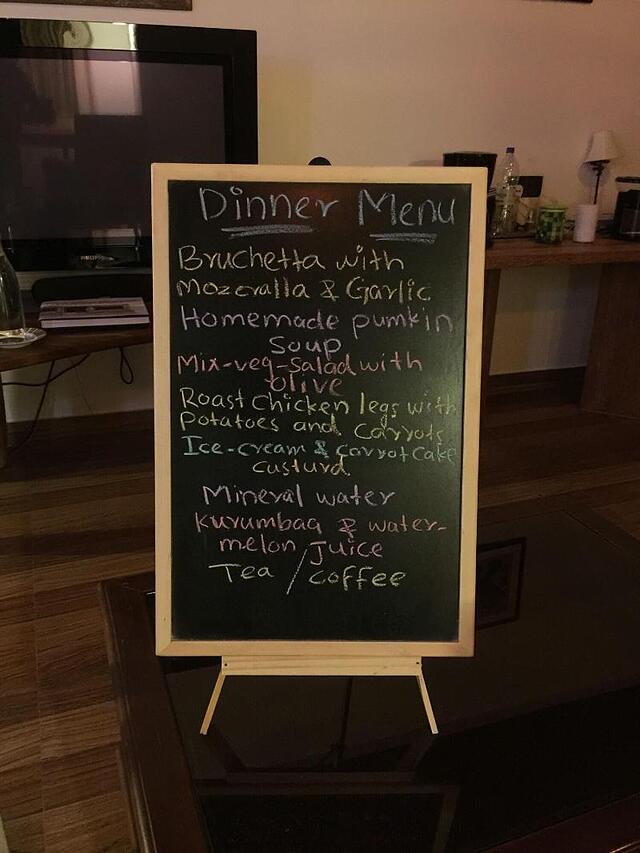 Dinner Menu
Bruchetta with
Mozcralla & Garlic
Homemade pumkin
Soup
Mix-veg-salad with
olive
Roast chicken legs with
potatoes and carrots
Ice-cream & carrot cake
custurd.
Mineral water
kurumbaa & water-
melon juice
Tea / coffee